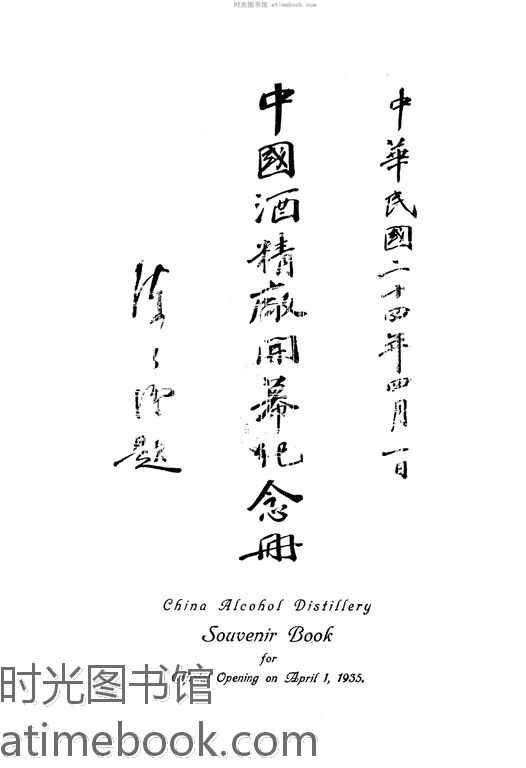 时光图书馆 atimebook.com
中華民國二十四年四月一日
中國酒精廠開幕紀念冊
題
China Alcohol Distillery
Souvenir Book
for
Opening on April 1, 1935.
时光图书馆
atimebook.com